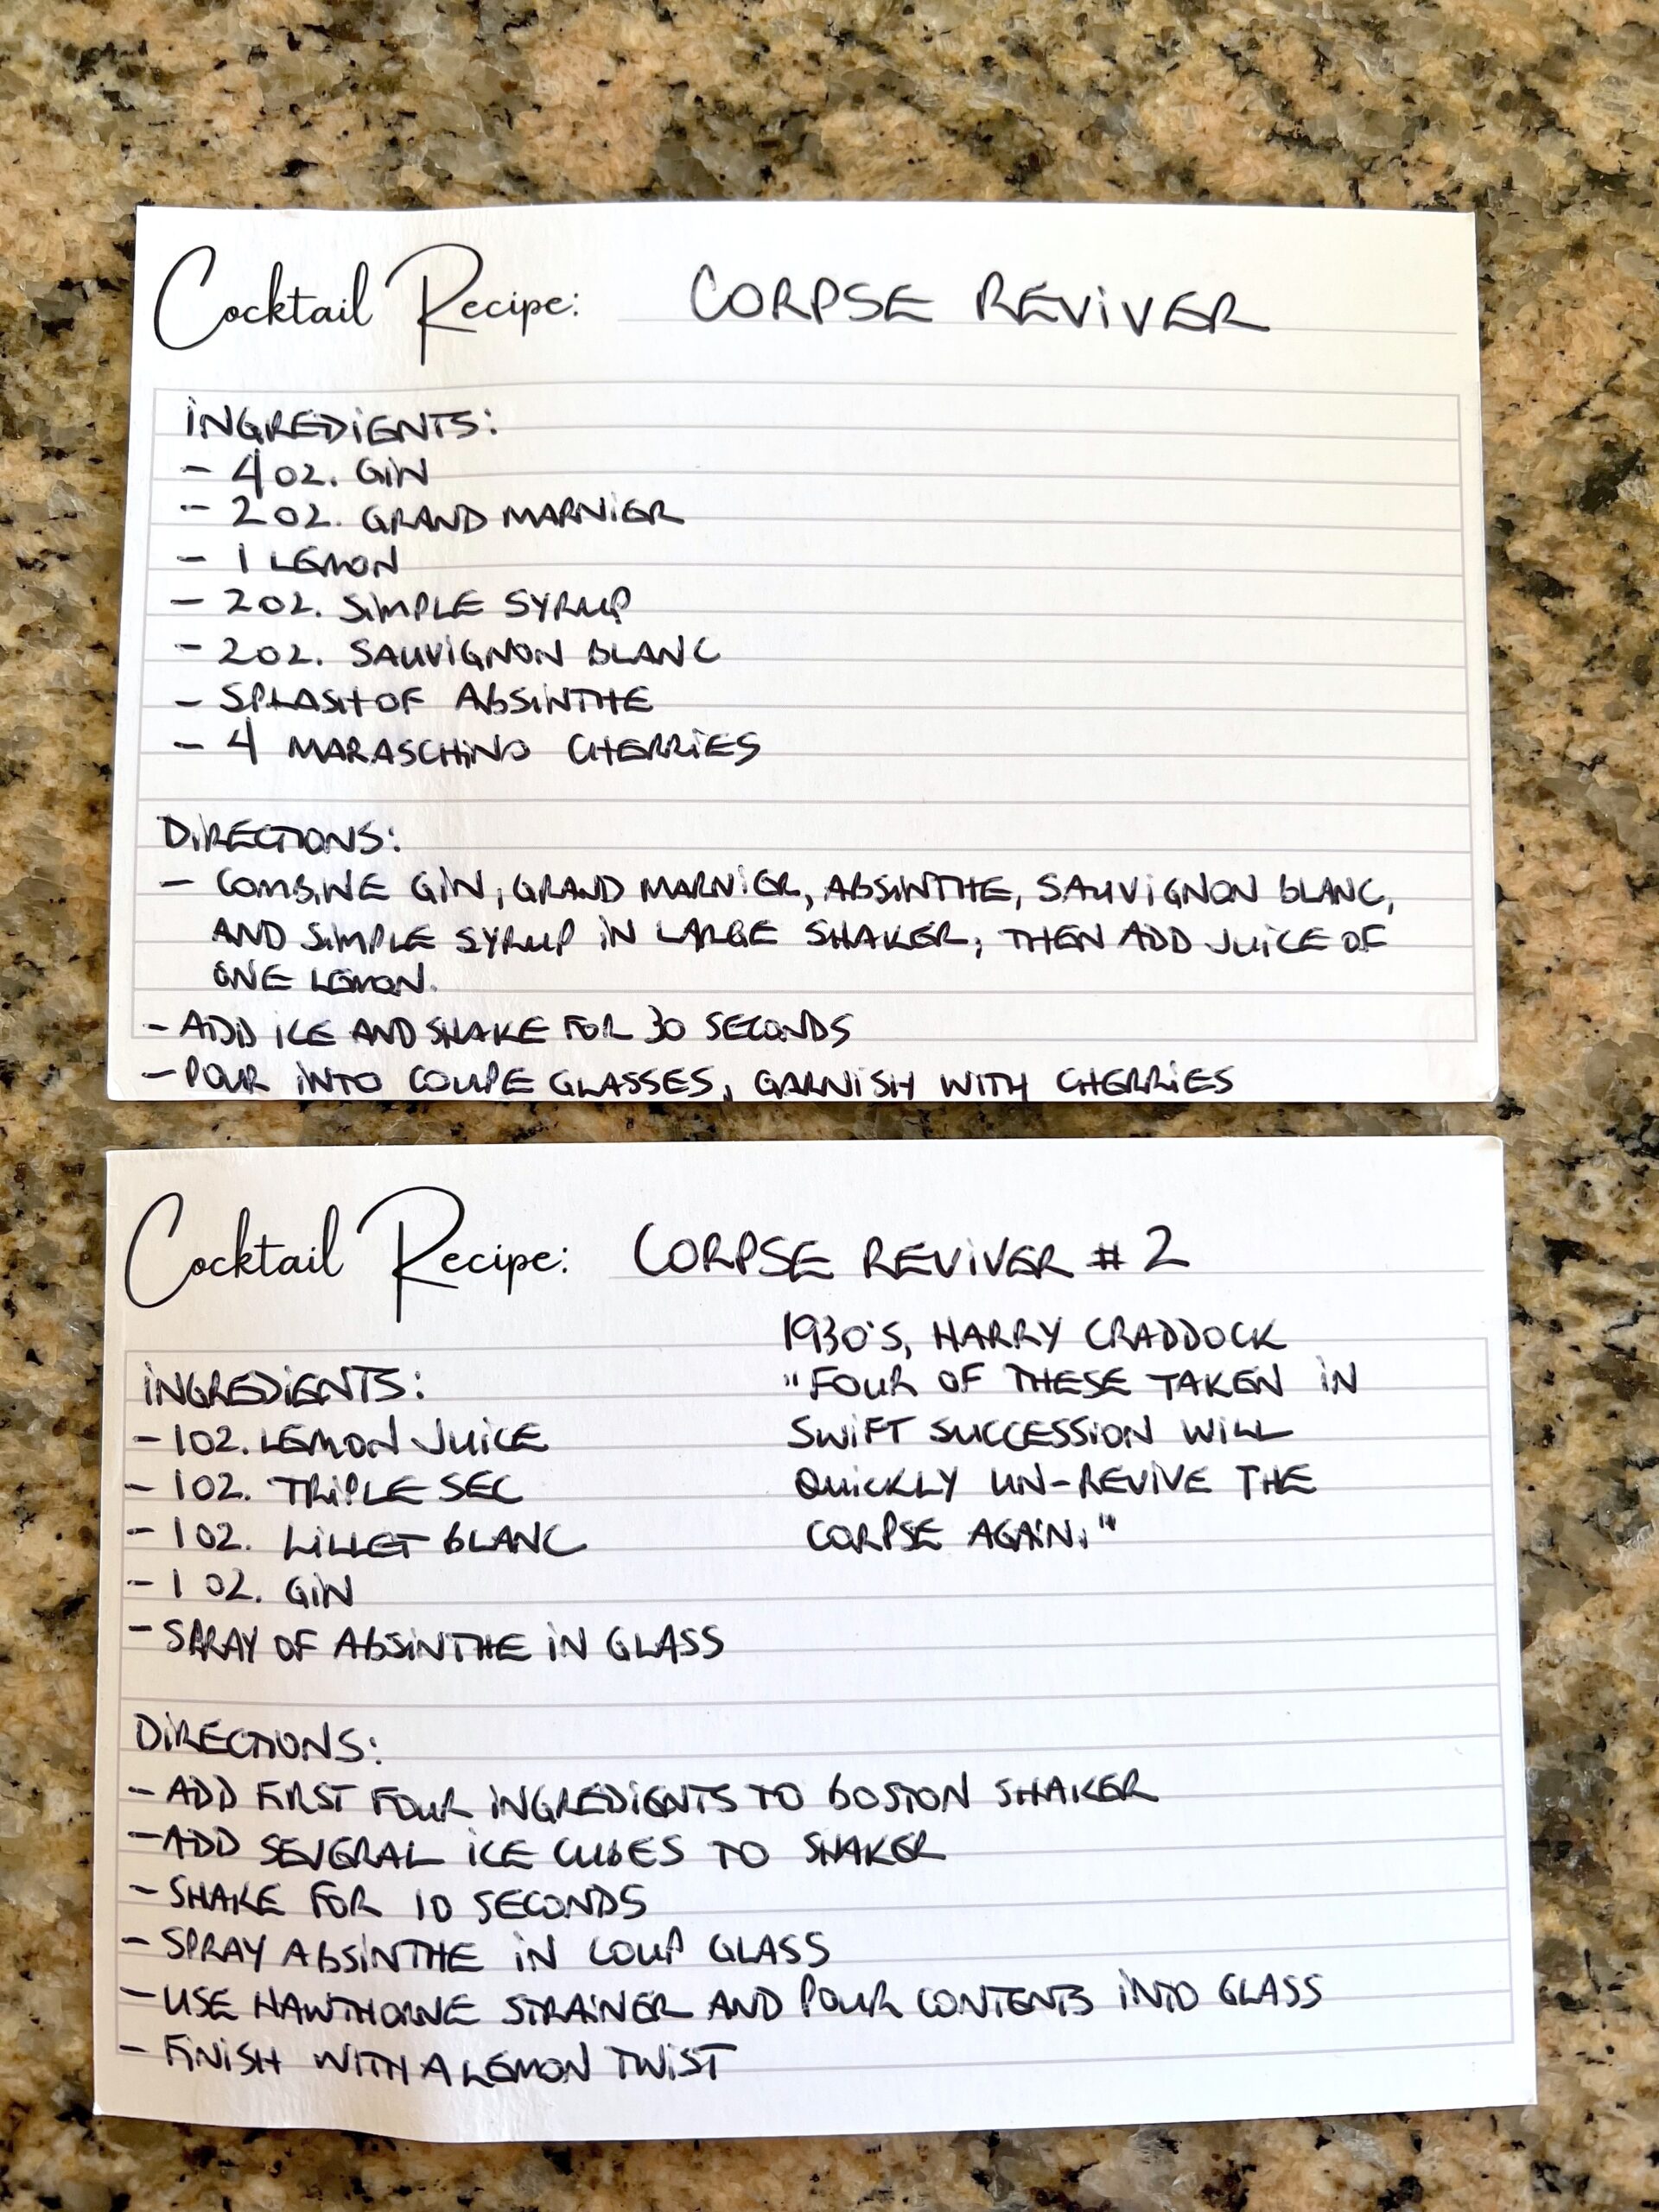 Cocktail Recipe: CORPSE REVIVER
INGREDIENTS:
- 4 OZ. GIN
- 2 OZ. GRAND MARNIER
- 1 LEMON
- 2 OZ. SIMPLE SYRUP
- 2 OZ. SAUVIGNON BLANC
- SPLASH OF ABSINTHE
- 4 MARASCHINO CHERRIES
DIRECTIONS:
- COMBINE GIN, GRAND MARNIER, ABSINTHE, SAUVIGNON BLANC,
AND SIMPLE SYRUP IN LARGE SHAKER; THEN ADD JUICE OF
ONE LEMON.
- ADD ICE AND SHAKE FOR 30 SECONDS
- POUR INTO COUPE GLASSES, GARNISH WITH CHERRIES
Cocktail Recipe: CORPSE REVIVER #2
1930'S, HARRY CRADDOCK
"FOUR OF THESE TAKEN IN
SWIFT SUCCESSION WILL
QUICKLY UN-REVIVE THE
CORPSE AGAIN."
INGREDIENTS:
- 1 OZ. LEMON JUICE
- 1 OZ. TRIPLE SEC
- 1 OZ. LILLET BLANC
- 1 OZ. GIN
- SPRAY OF ABSINTHE IN GLASS
DIRECTIONS:
- ADD FIRST FOUR INGREDIENTS TO BOSTON SHAKER
- ADD SEVERAL ICE CUBES TO SHAKER
- SHAKE FOR 10 SECONDS
- SPRAY ABSINTHE IN COUP GLASS
- USE HAWTHORNE STRAINER AND POUR CONTENTS INTO GLASS
- FINISH WITH A LEMON TWIST